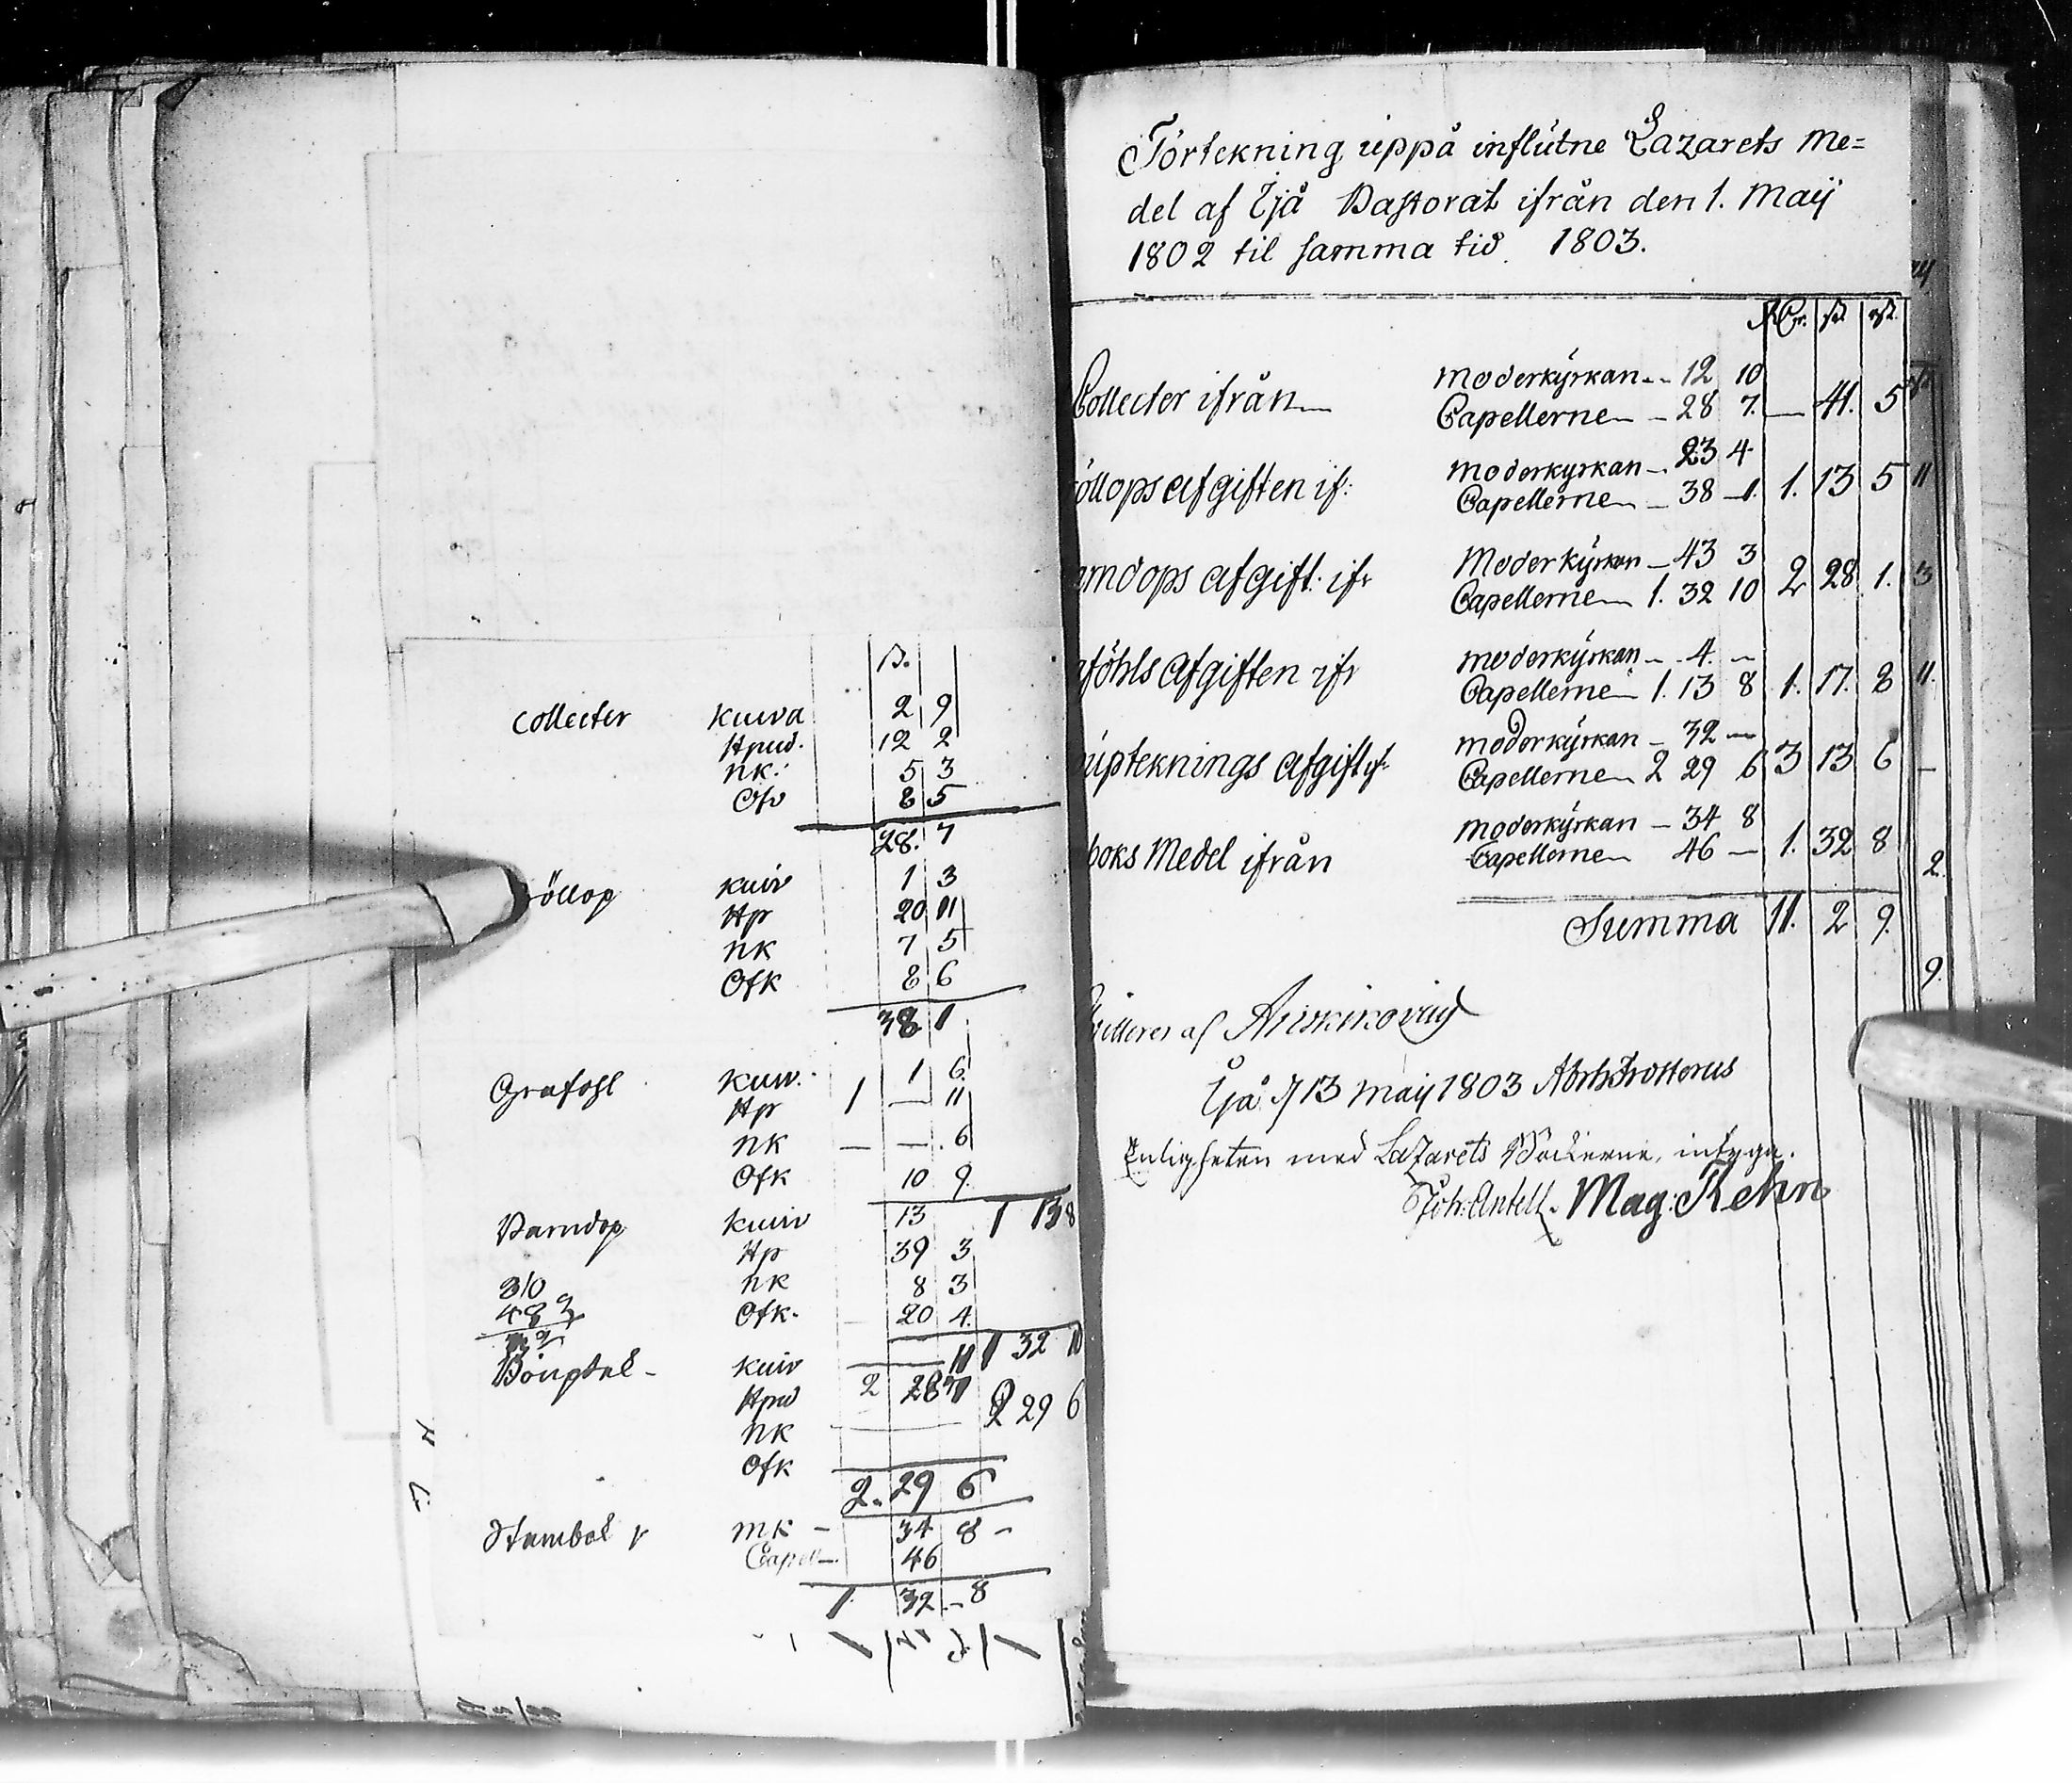 ß.
Collecter Kuiva 2 9
Hpud. 12 2
NK. 5 3
Ofv 8 5
28. 7
öllop Kuiv 1 3
Hp 20 11
NK 7 5
Ofk 8 6
38 1
Grafohl Kuiv. 1 6
Hp 1 — 11
NK — — 6
Ofk 10 9.
Barndop Kuiv 13 1 13 8
Hp 39 3
310 NK 8 3
Ofk. — 20 4.
1 32 10
Kuiv — — 11
Hpud 2 28 7
2 29 6
NK
Ofk
2. 29 6
Stambok MK — 34 8 —
Capell — 46
1. 32 — 8
Förtekning uppå influtne Lazarets Me=
del af Ijå Pastorat ifrån den 1. Maij
1802 til samma tid 1803.
RDr. ß rst.
Collecter ifrån — Moderkÿrkan — 12 10
Capellerne — 28 7. — 41. 5
öllops afgiften if: Moderkyrkan — 23 4
Capellerne — 38 — 1. 1. 13 5
rndops afgift. ifr Moderkÿrkan — 43 3
Capellerne — 1. 32 10 2 28 1.
föhls afgiften ifr Moderkÿrkan — 4. —
Capellerne — 1. 13 8 1. 17. 8
upteknings afgift if: Moderkÿrkan — 32 —
Capellerne 2 29 6 3 13 6
boks Medel ifrån Moderkÿrkan — 34 8
Capellerne 46 — 1. 32 8
Summa 11. 2 9.
af
Ijå d 13 Maij 1803 Abrh Frosterus
Enligheten med Lazarets Böckerne, intyga.
Joh: Antell. Mag: Kehn